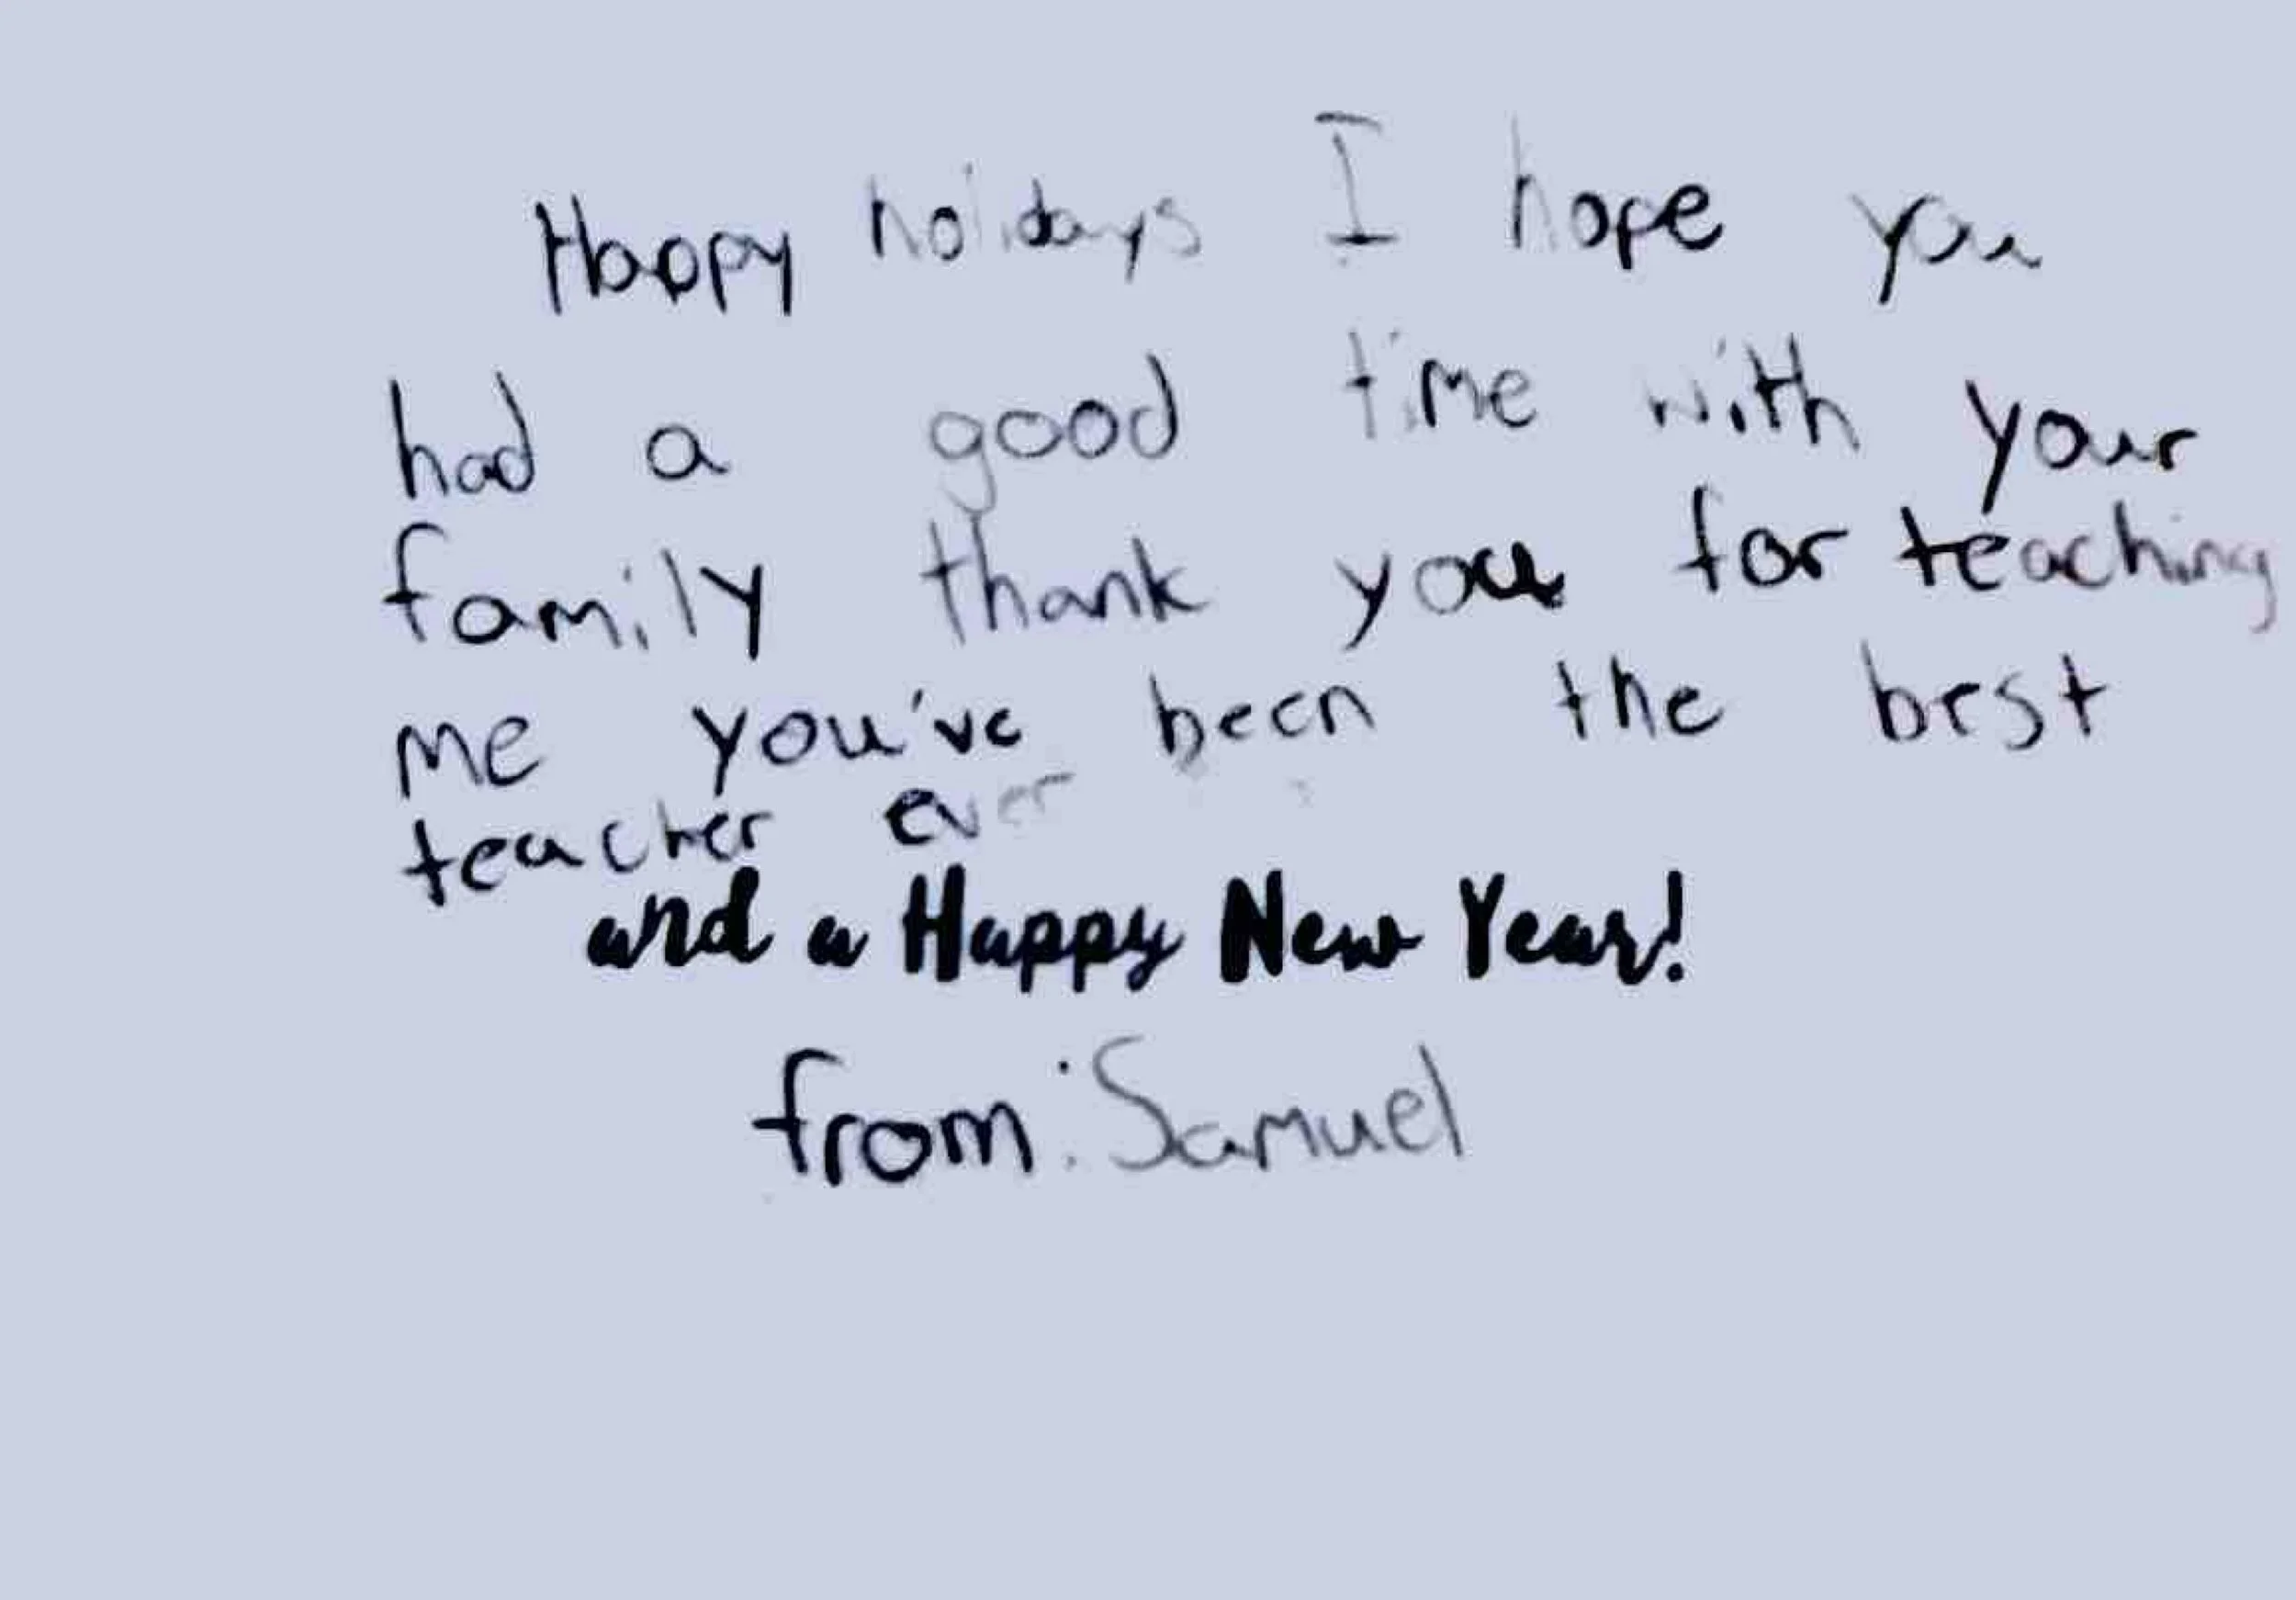 Happy holidays I hope you
had a good time with your
family thank you for teaching
me you've been the best
teacher ever
and a Happy New Year!
from: Samuel